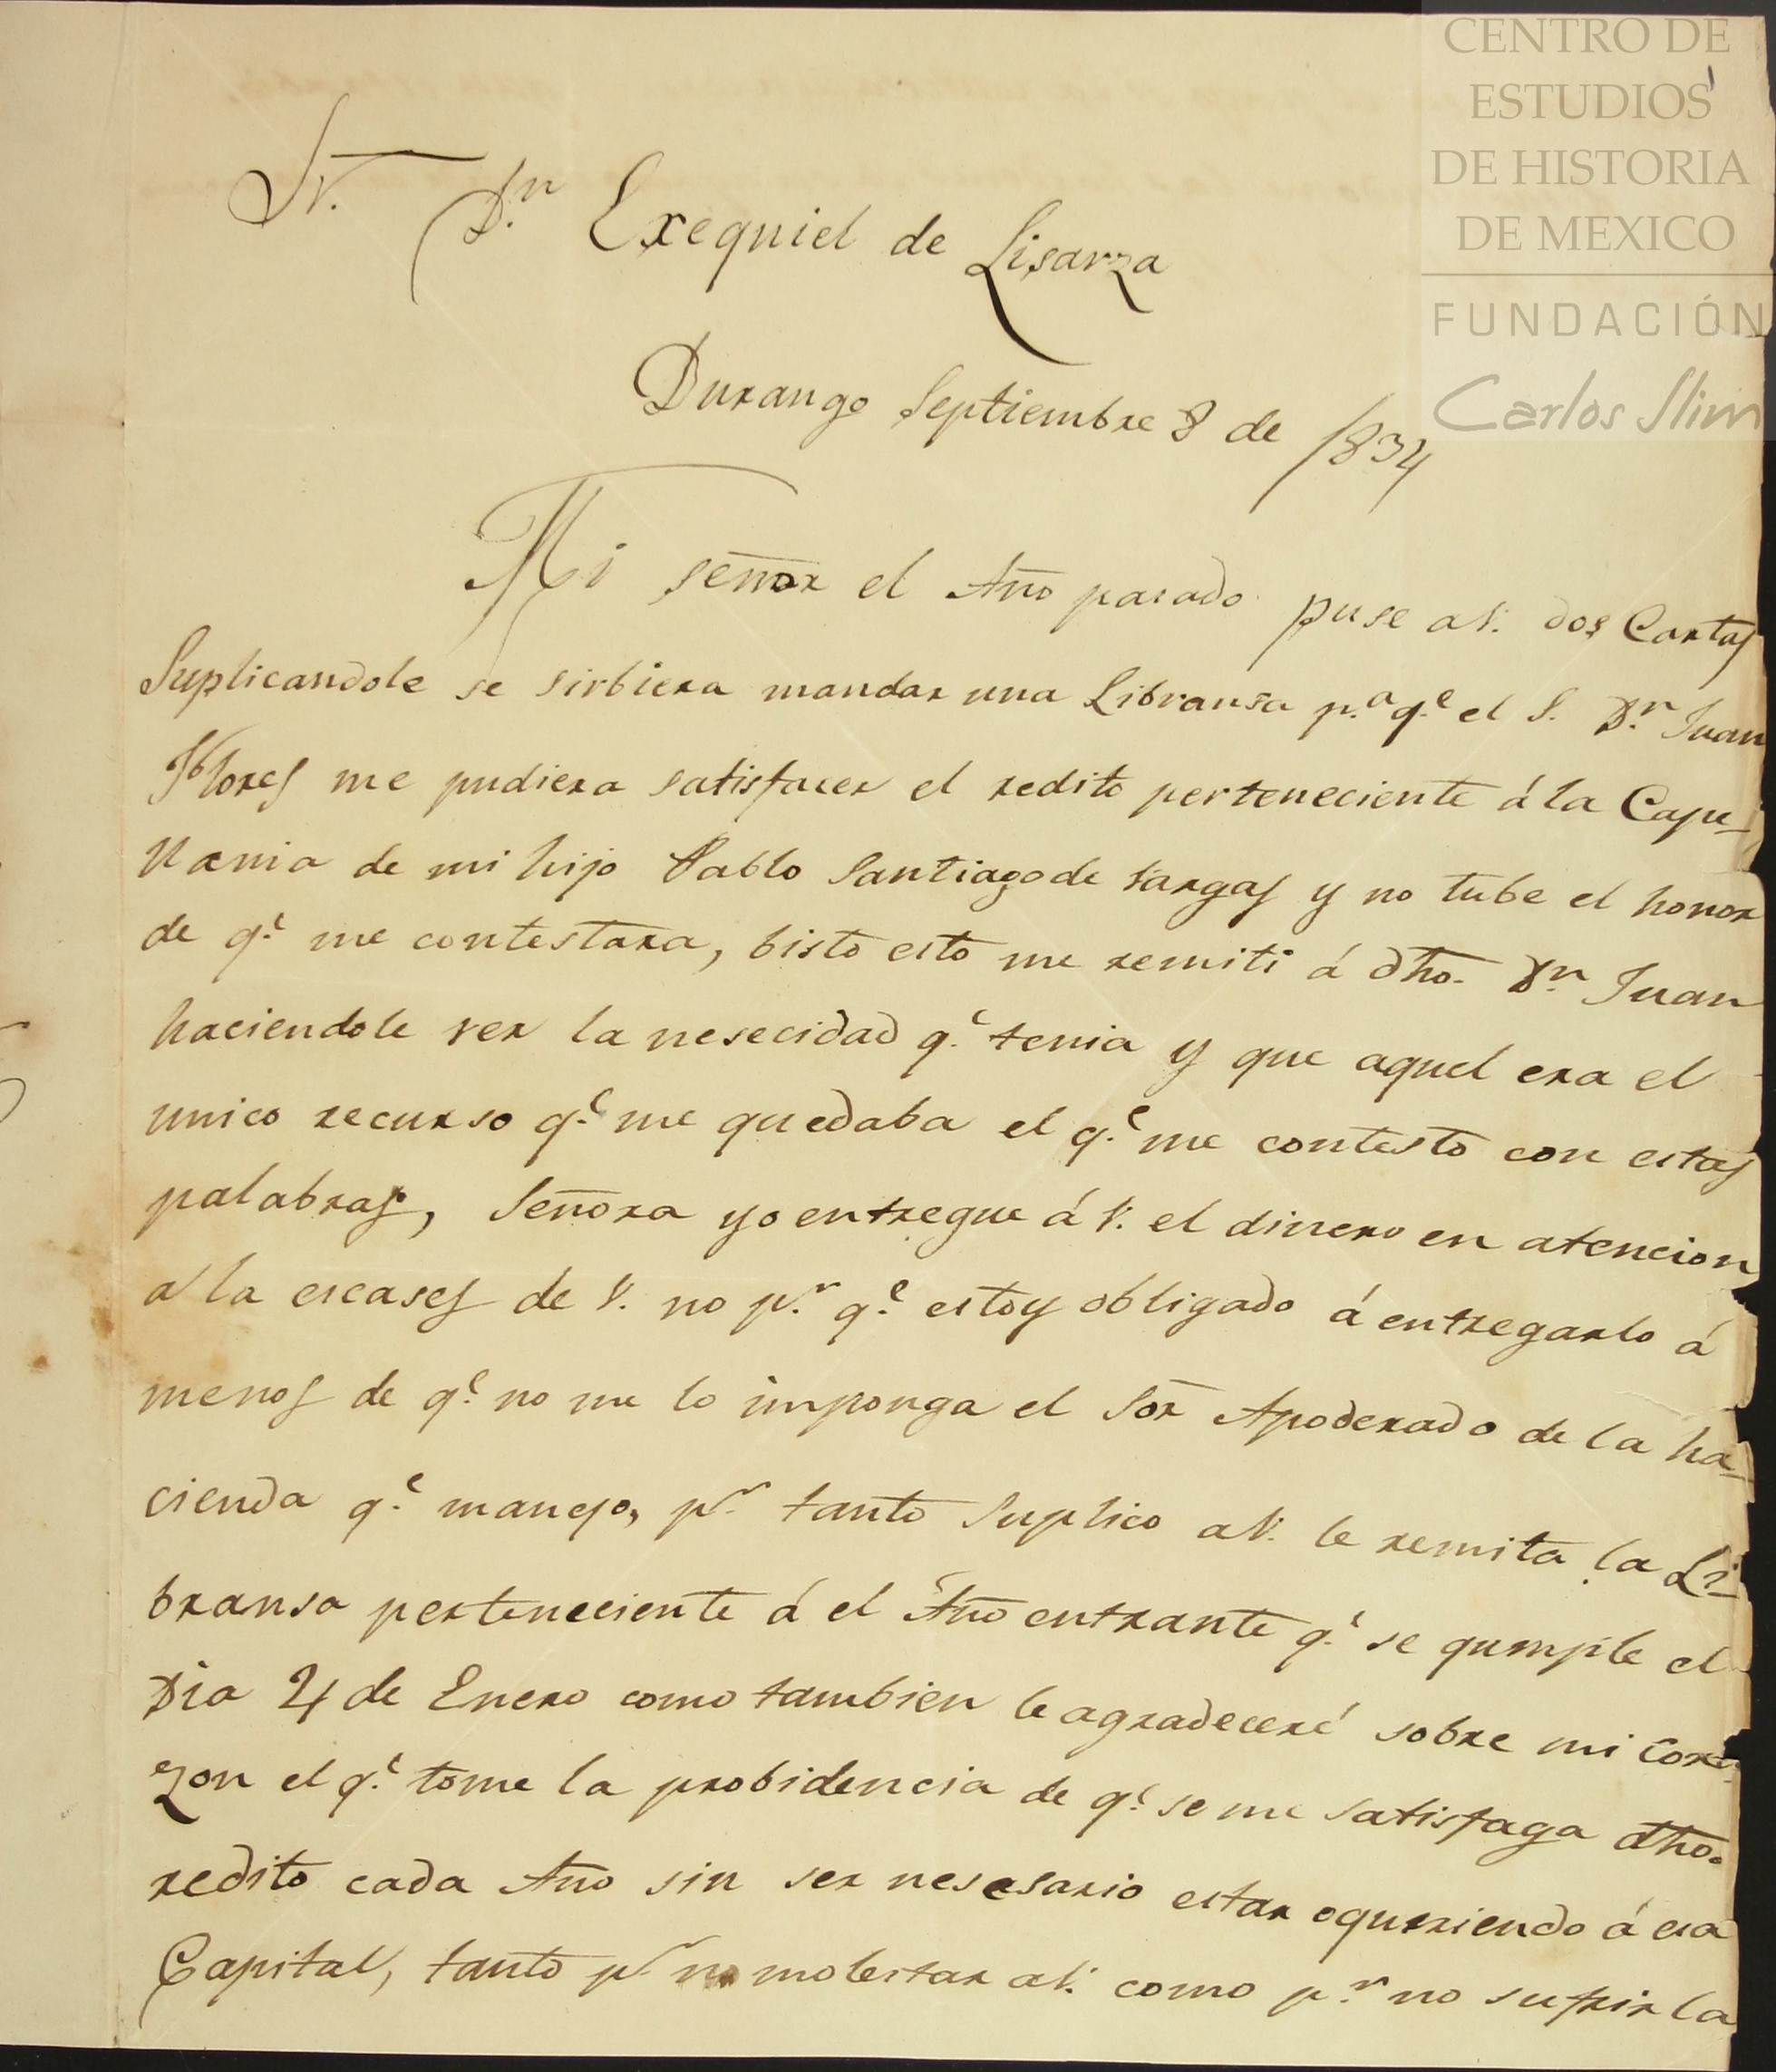 CENTRO DE
ESTUDIOS
DE HISTORIA
DE MEXICO
FUNDACIÓN
Carlos Slim
Sr. D.n Exequiel de Lisarza
Durango Septiembre 8 de 1834
Mi señor el Año pasado puse a V. dos Cartas
Suplicandole se sirbiera mandar una Libransa p.a q.e el S. D.n Juan
Flores me pudiera satisfacer el redito perteneciente á la Cape-
llania de mi hijo Pablo Santiago de Vargas y no tube el honor
de q.e me contestara, bisto esto me remiti á dho. D.n Juan
haciendole ver la nesecidad q.e tenia y que aquel era el
unico recurso q.e me quedaba el q.e me contesto con estas
palabras, Señora yo entregue á V. el dinero en atencion
a la escases de V. no p.r q.e estoy obligado á entregarlo á
menos de q.e no me lo imponga el Sor Apoderado de la ha-
cienda q.e manejo, p.r tanto Suplico a V. le remita la Li-
bransa perteneciente á el Año entrante q.e se qumple el
Dia 4 de Enero como tambien le agradeceré sobre mi Cora-
zon el q.e tome la probidencia de q.e se me satisfaga dho.
redito cada Año sin ser nesesario estar oqurriendo á esa
Capital, tanto p.r no molestar a V. como p.r no sufrir la